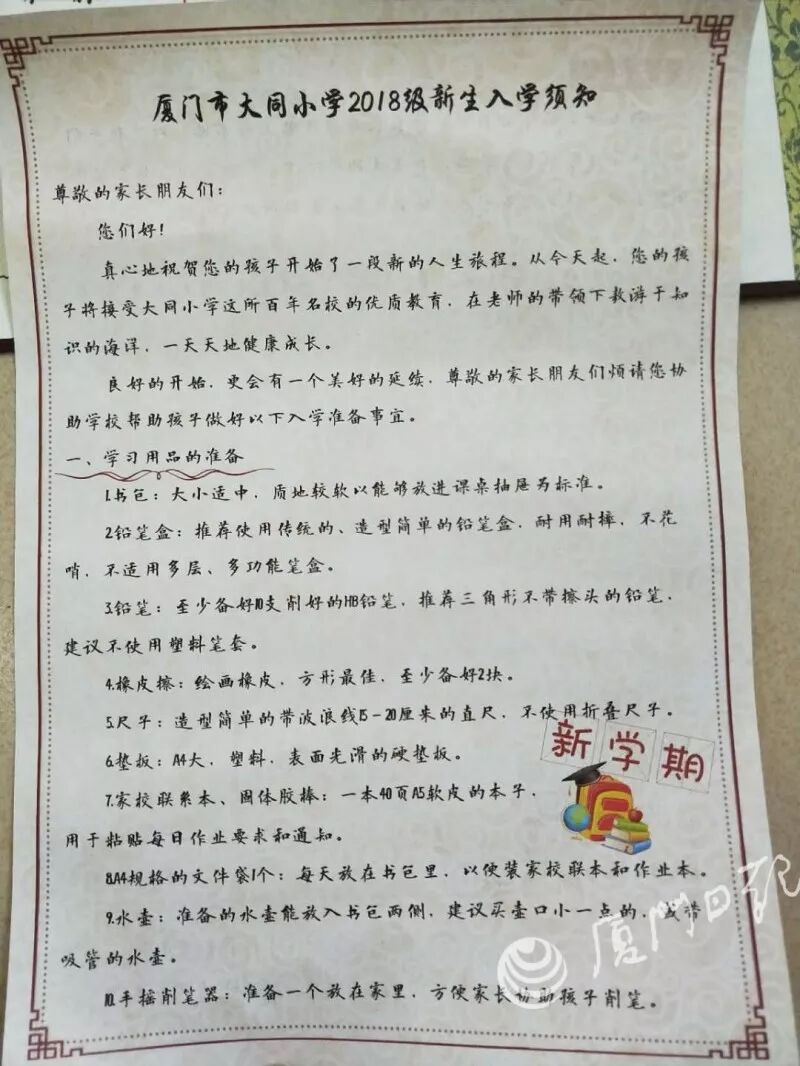 厦门市大同小学2018级新生入学须知
尊敬的家长朋友们：
您们好！
真心地祝贺您的孩子开始了一段新的人生旅程。从今天起，您的孩
子将接受大同小学这所百年名校的优质教育，在老师的带领下敖游于知
识的海洋，一天天地健康成长。
良好的开始，更会有一个美好的延续，尊敬的家长朋友们烦请您协
助学校帮助孩子做好以下入学准备事宜。
一、学习用品的准备
1.书包：大小适中，质地较软以能够放进课桌抽屉为标准。
2.铅笔盒：推荐使用传统的、造型简单的铅笔盒，耐用耐摔，不花
哨，不适用多层、多功能笔盒。
3.铅笔：至少备好10支削好的HB铅笔，推荐三角形不带擦头的铅笔，
建议不使用塑料笔套。
4.橡皮擦：绘画橡皮，方形最佳，至少备好2块。
5.尺子：造型简单的带波浪线15-20厘米的直尺，不使用折叠尺子。
6.垫板：A4大，塑料，表面光滑的硬垫板。
新学期
7.家校联系本、固体胶棒：一本40页A5软皮的本子，
用于粘贴每日作业要求和通知。
8.A4规格的文件袋1个：每天放在书包里，以便装家校联本和作业本。
9.水壶：准备的水壶能放入书包两侧，建议买壶口小一点的，或带
吸管的水壶。
10.手摇削笔器：准备一个放在家里，方便家长协助孩子削笔。
厦门日报